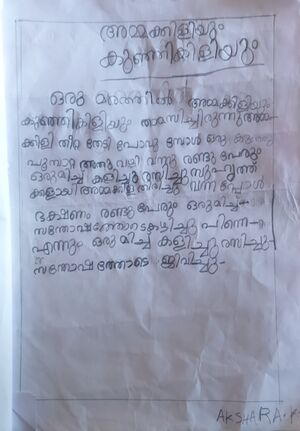 അമ്മക്കിളിയും
കുഞ്ഞിക്കിളിയും
ഒരു മരത്തിൽ അമ്മക്കിളിയും
കുഞ്ഞിക്കിളിയും താമസിച്ചിരുന്നു അമ്മ
ക്കിളി തീറ്റ തേടി പോവു മ്പോൾ ഒരു
പൂമ്പാറ്റ അതു വഴി വന്നു രണ്ടു പേരും
ഒരുമിച്ച് കളിച്ചു രസിച്ചു
ക്കളായി അമ്മക്കിളി തിരിച്ചു വന്ന പ്പോൾ
ഭക്ഷണം രണ്ടു പേരും ഒരുമിച്ചു-
സന്തോഷത്തോടെ കഴിച്ചു പിന്നെ-
എന്നും ഒരു മിച്ച് കളിച്ചു രസിച്ചു-
സന്തോഷ ത്തോടെ ജീവിച്ചു-
AKSHARA.K